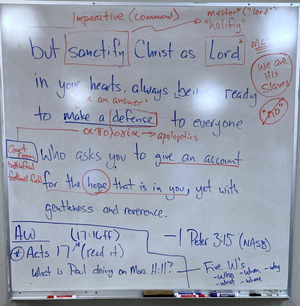 Imperative (command)
master "(lord)"
"holify"
but sanctify Christ as Lord*
We are
His
Slaves
in your hearts, always being ready
give an answer
"NO"
to make a defense to everyone
απολογία → apologetics
Court room
who asks you to give an account
football field
for the hope that is in you, yet with
gentleness and reverence.
AW (17:16ff)
1 Peter 3:15 (NASB)
* Acts 17 (read it)
What is Paul doing on Mars Hill?
Five W's
-who -when -why
-what -where